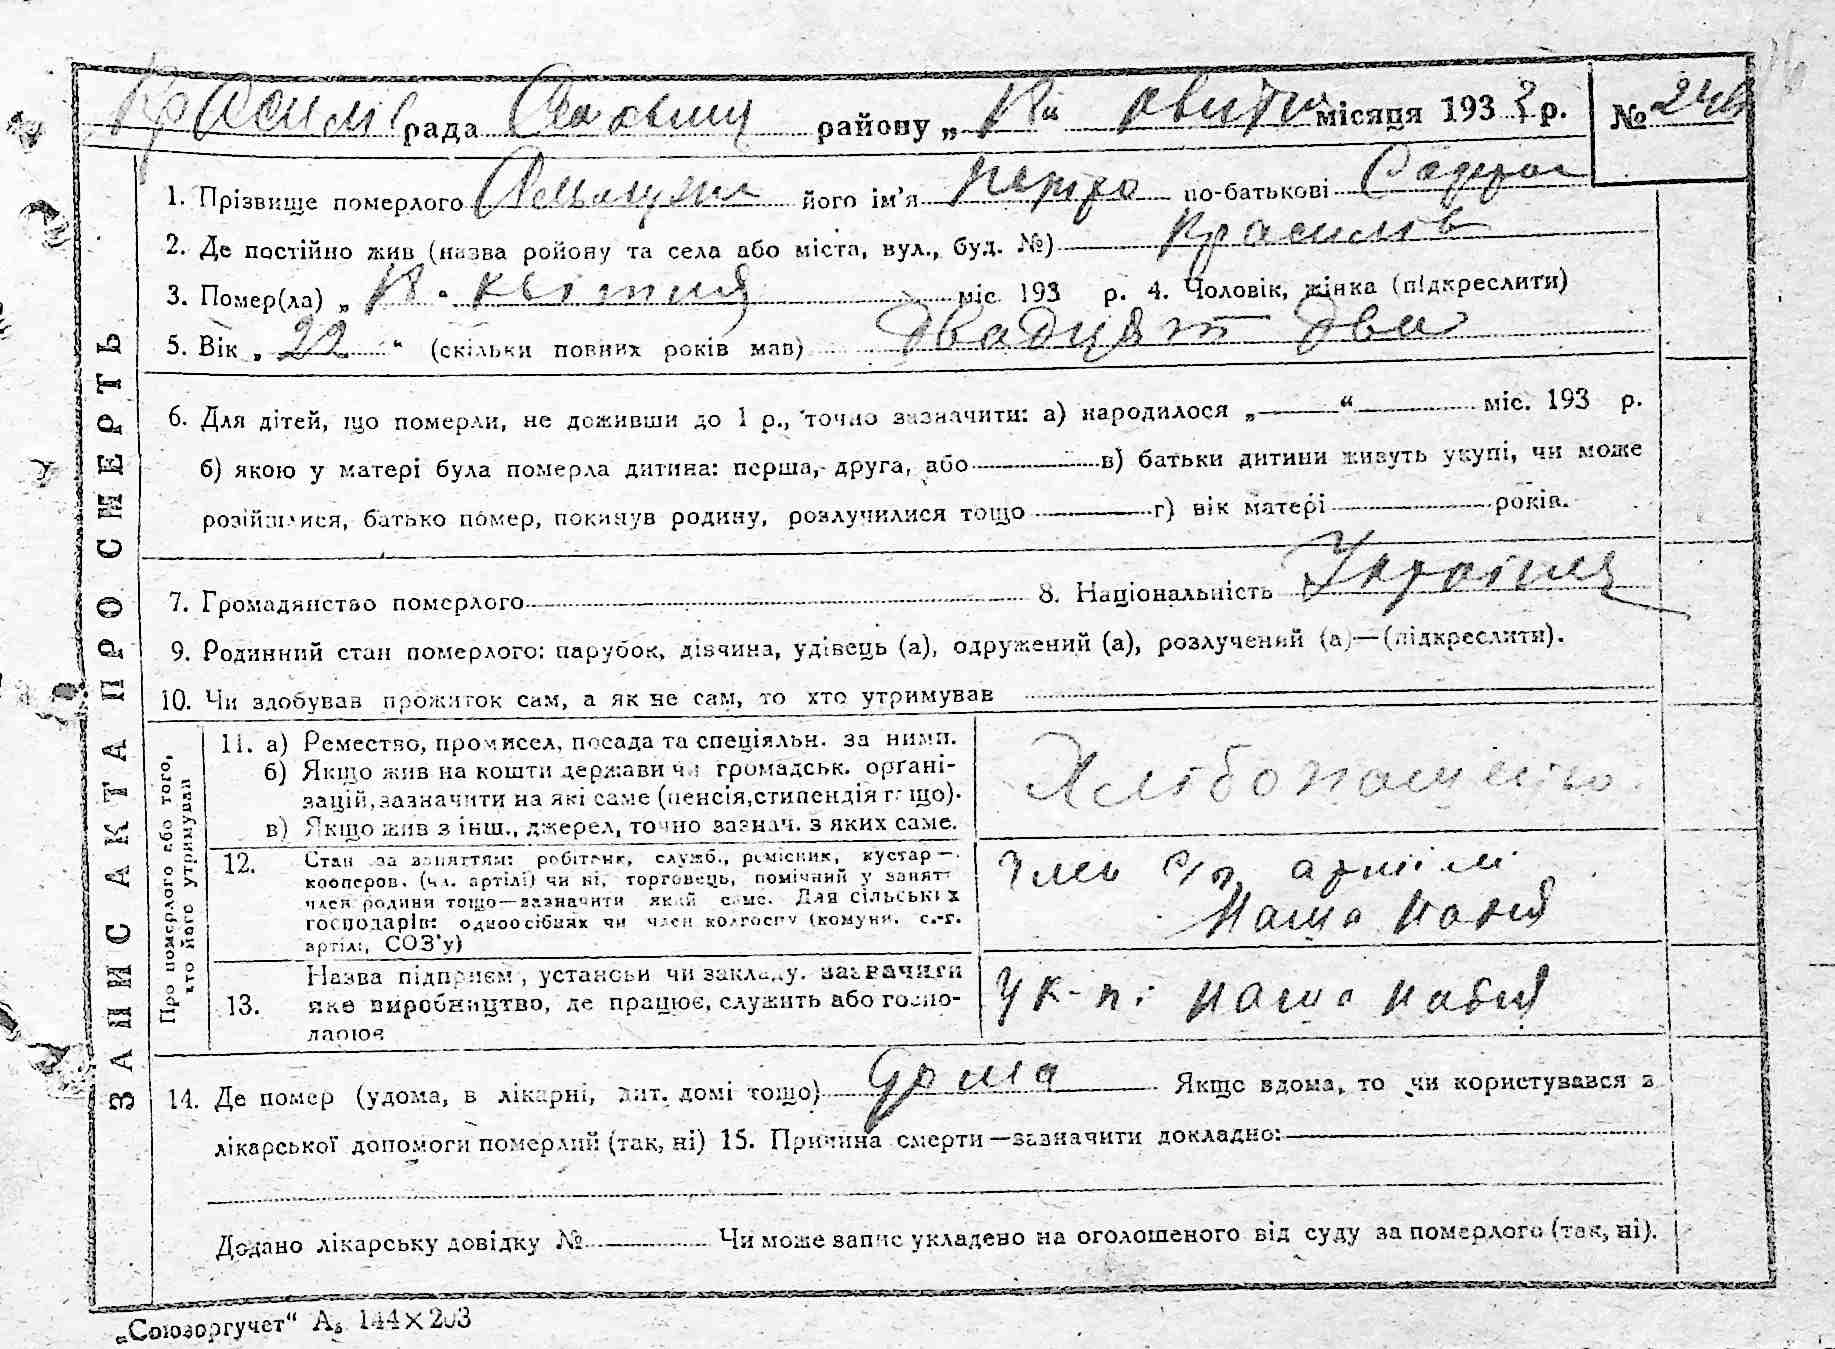 рада району „ “ місяця 1933 р. №
ЗАПИС АКТА ПРО СМЕРТЬ
1. Прізвище померлого його ім'я по-батькові
2. Де постійно жив (назва ройону та села або міста, вул., буд. №) Красилів
3. Помер(ла) „ квітня міс. 193 р. 4. Чоловік, жінка (підкреслити)
5. Вік „ 22 “ (скільки повних років мав) двадцят два
6. Для дітей, що померли, не доживши до 1 р., точно зазначити: а) народилося „ “ міс. 193 р.
б) якою у матері була померла дитина: перша, друга, або в) батьки дитини живуть укупі, чи може
розійшлися, батько помер, покинув родину, розлучилися тощо г) вік матері років.
7. Громадянство померлого 8. Національність
9. Родинний стан померлого: парубок, дівчина, удівець (а), одружений (а), розлучений (а)—(підкреслити).
10. Чи здобував прожиток сам, а як не сам, то хто утримував
Про померлого або того, хто його утримував
11. а) Ремество, промисел, посада та спеціяльн. за ними.
б) Якщо жив на кошти держави чи громадськ. органі-
зацій, зазначити на які саме (пенсія, стипендія тощо).
в) Якщо жив з інш., джерел, точно зазнач. з яких саме.
12. Стан за заняттям: робітник, служб., ремісник, кустар—
кооперов. (чл. артілі) чи ні, торговець, помічний у занятт
член родини тощо—зазначити який саме. Для сільських
господарів: одноосібник чи член колгоспу (комуни, с.-г.
артілі, СОЗ'у)
Член с/г артілі
Наша Надія
13. Назва підприєм., установи чи закладу. зазначити
яке виробництво, де працює, служить або госпо-
дарює
У к-пі Наша Надія
14. Де помер (удома, в лікарні, дит. домі тощо) Удома Якщо вдома, то чи користувався з
лікарської допомоги померлий (так, ні) 15. Причина смерти—зазначити докладно:
Додано лікарську довідку № Чи може запис укладено на оголошеного від суду за померлого (так, ні).
„Союзоргучет“ А₅ 144×203